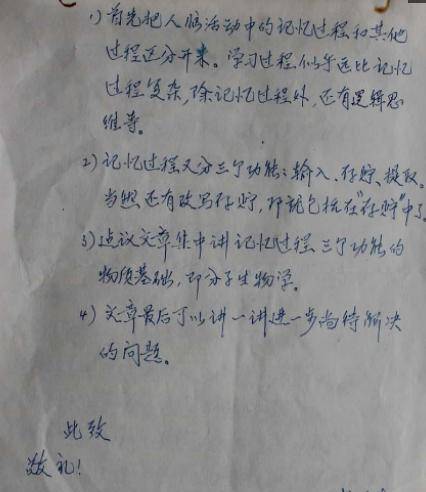 1) 首先把人脑活动中的记忆过程和其他
过程区分开来。学习过程似乎远比记忆
过程复杂,除记忆过程外,还有逻辑思
维等。
2) 记忆过程又分三个功能:输入、存贮、提取。
当然还有改写存贮,那就包括在"存贮"中了
3) 建议文章集中讲记忆过程三个功能的
物质基础,即分子生物学。
4) 文章最后可以讲一讲进一步尚待解决
的问题。
此致
敬礼!